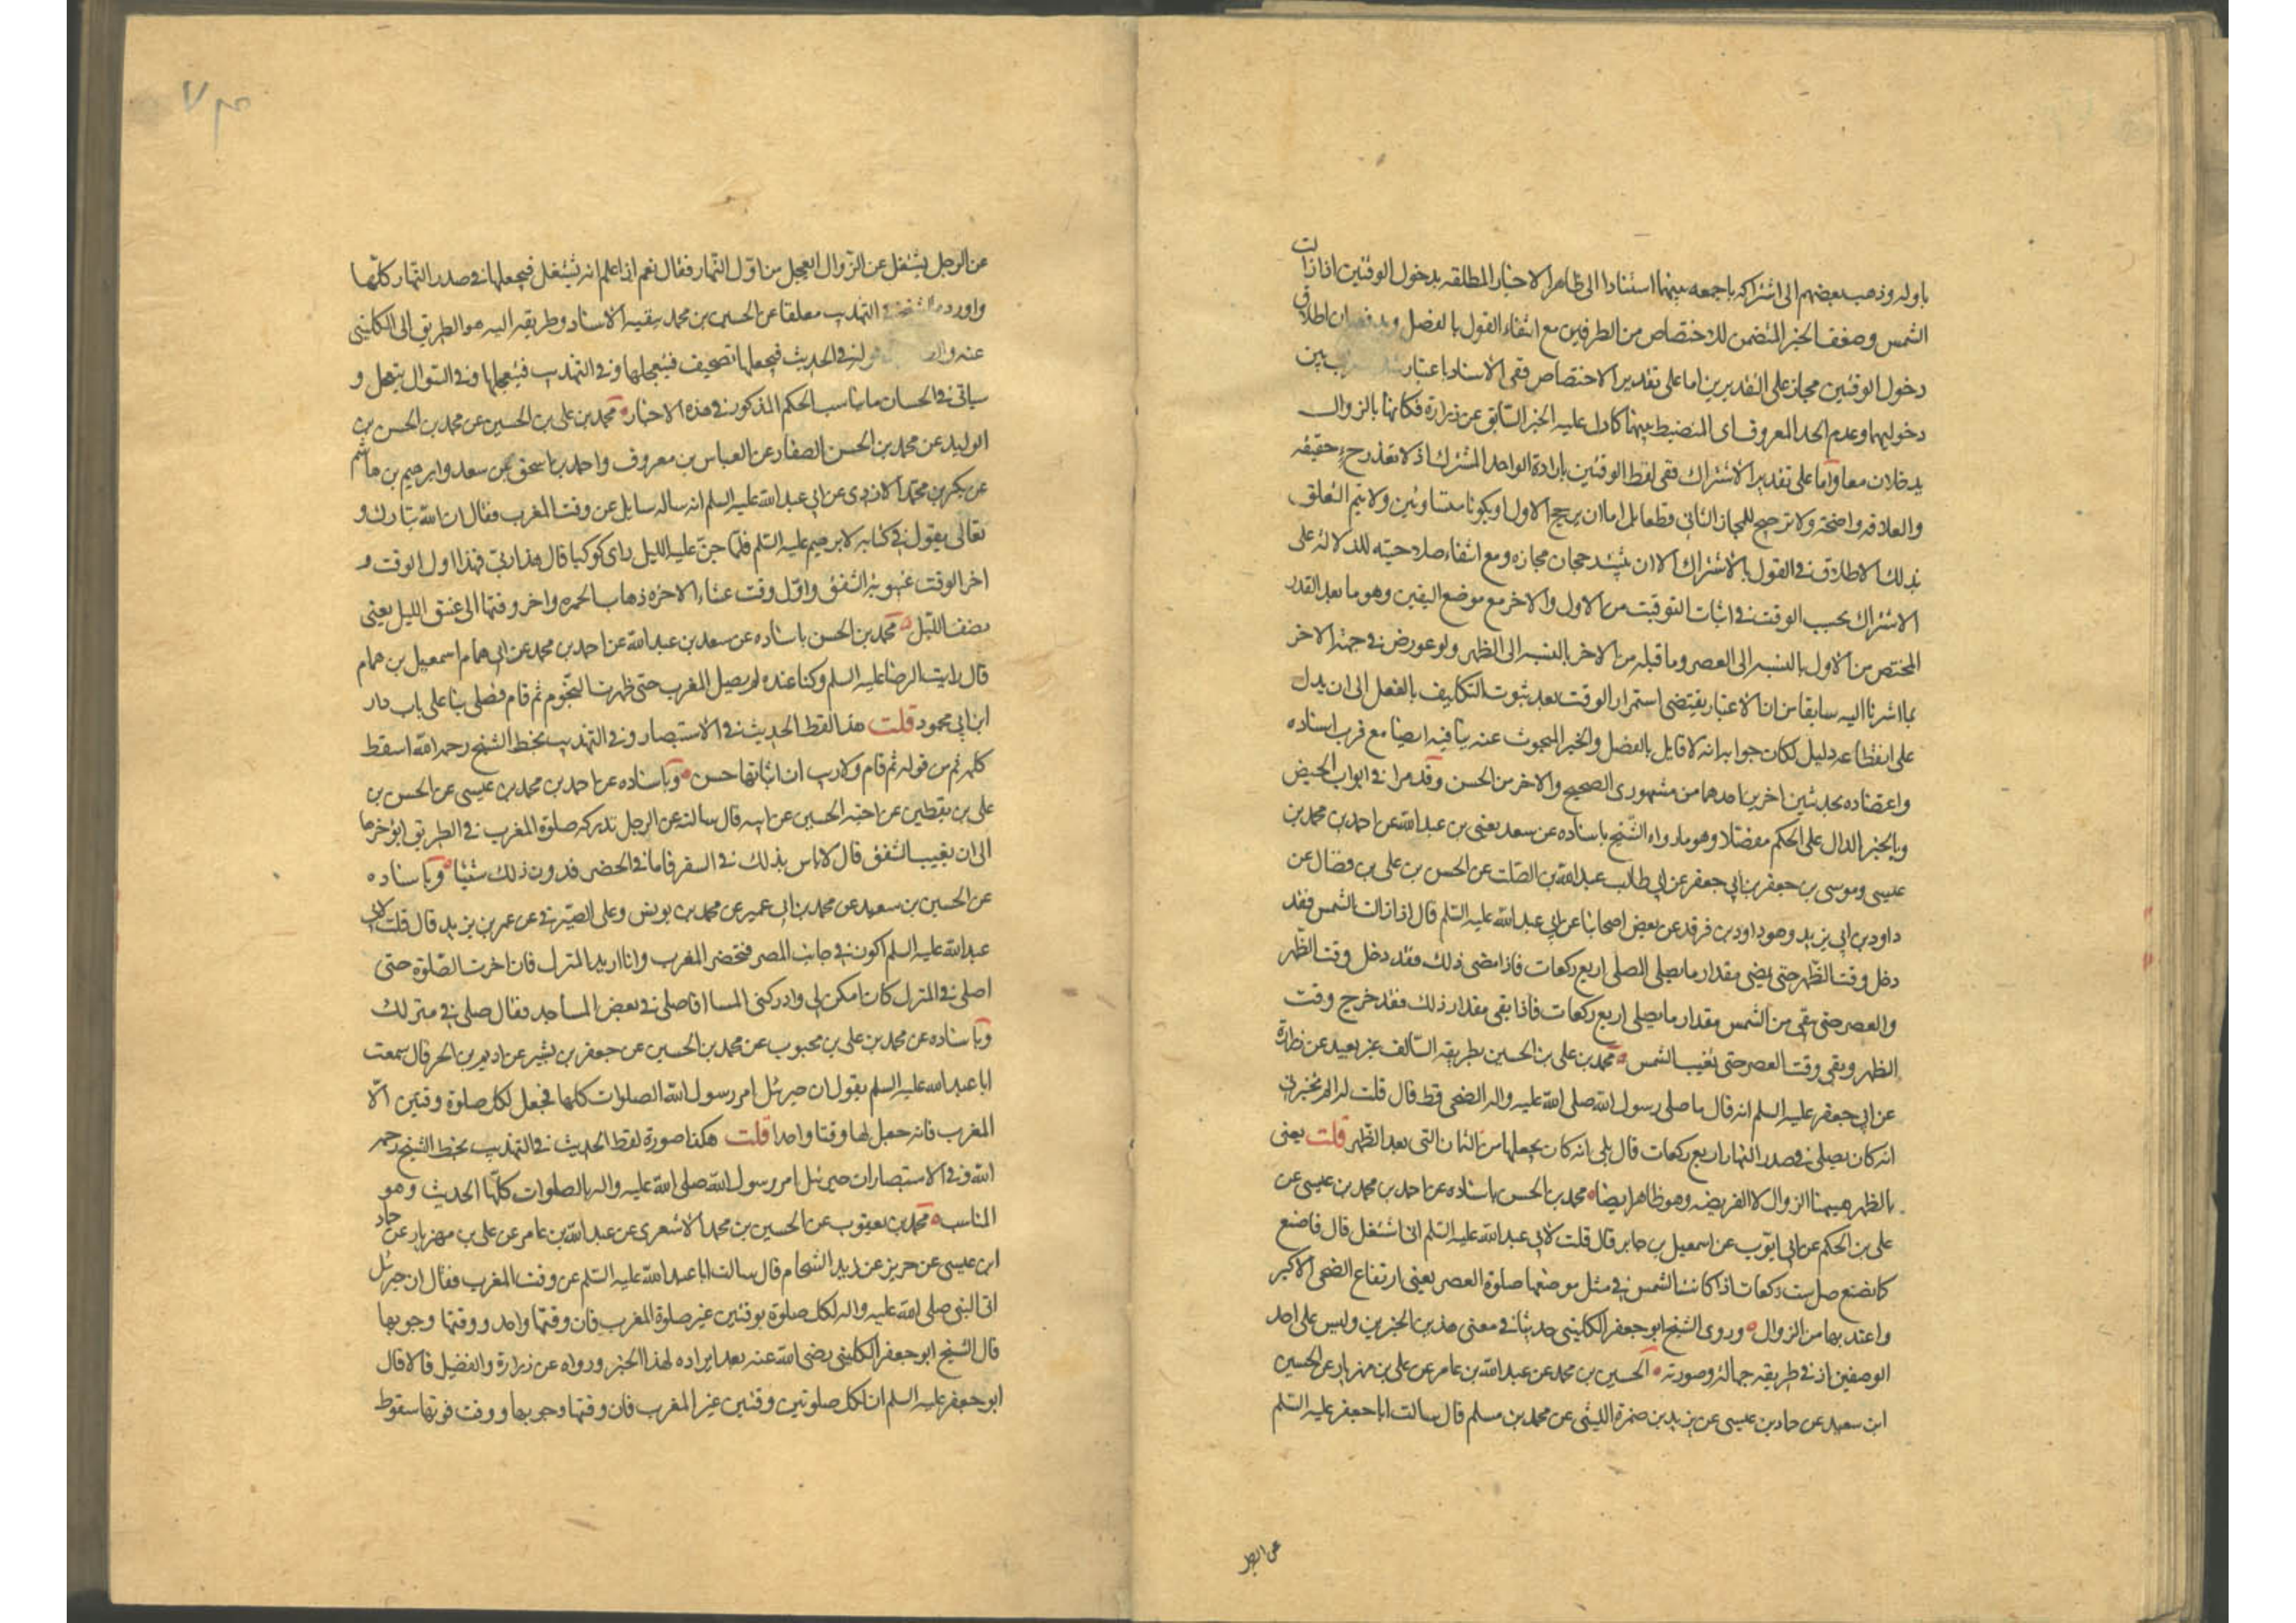 باوله وذهب بعضهم الى اشتراكه باجمعه بينهما استنادا الى ظاهر الاخبار المطلقه بدخول الوقتين اذا زالت
الشمس وضعف الخبر المتضمن للاختصاص من الطرفين مع انتفاء القول بالفصل ويدفعه ان اطلاق
دخول الوقتين مجاز على التقديرين اما على تقدير الاختصاص ففى الاسناد باعتبار بين
دخوليهما وعدم الحد المعروف اى المنضبط بينهما كما دل عليه الخبر السابق عن زرارة فكانهما بالزوال
يدخلان معا واما على تقدير الاشتراك ففى لفظ الوقتين بارادة الواحد المشترك اذ لا تعدد ح حقيقه
والعلاقه واضحة ولا ترجيح للمجاز الثانى قطعا بل اما ان يرجح الاول او يكونا متساويين ولا يتم التعلق
بذلك الاطلاق فى القول بالاشتراك الا ان يثبت رجحان مجازه ومع انتفاء صلاحيته للدلالة على
الاشتراك يجب الوقت فى اثبات التوقيت من الاول والاخر مع موضع اليقين وهو ما بعد القدر
المختص من الاول بالنسبه الى العصر وما قبله من الاخر بالنسبه الى الظهر ولو عورض فى جهة الاخر
بما اشرنا اليه سابقا من ان الاعتبار يقتضى استمرار الوقت بعد ثبوت التكليف بالفعل الى ان يدل
على انقطاعه دليل لكان جوابه انه لا قايل بالفصل والخبر المبحوث عنه ينافيه ايضا مع قرب اسناده
واعتضاده بحديثين اخرين احدهما من مشهورى الصحيح والاخر من الحسن وقد مرا فى ابواب الحيض
وبالخبر الدال على الحكم مفصلا وهو ما رواه الشيخ باسناده عن سعد يعنى بن عبد الله عن احمد بن محمد بن
عيسى وموسى بن جعفر بن ابى جعفر عن ابى طالب عبد الله بن الصلت عن الحسن بن على بن فضال عن
داود بن ابى يزيد وهو داود بن فرقد عن بعض اصحابنا عن ابى عبد الله عليه السلم قال اذا زالت الشمس فقد
دخل وقت الظهر حتى يمضى مقدار ما يصلى المصلى اربع ركعات فاذا مضى ذلك فقد دخل وقت الظهر
والعصر حتى يبقى من الشمس مقدار ما يصلى اربع ركعات فاذا بقى مقدار ذلك فقد خرج وقت
الظهر وبقى وقت العصر حتى تغيب الشمس محمد بن على بن الحسين بطريقه السالف غير بعيد عن زرارة
عن ابى جعفر عليه السلم انه قال ما صلى رسول الله صلى الله عليه واله الضحى قط قال قلت له الم تخبرنى
انه كان يصلى فى صدر النهار اربع ركعات قال بلى انه كان يجعلها من الثمان التى بعد الظهر قلت يعنى
بالظهر هيهنا الزوال لا الفريضه وهو ظاهر ايضا محمد بن الحسن باسناده عن احمد بن محمد بن عيسى عن
على بن الحكم عن ابى ايوب عن اسمعيل بن جابر قال قلت لابى عبد الله عليه السلم انى اشتغل قال فاصنع
كما نصنع صل ست ركعات اذا كانت الشمس فى مثل موضعها صلوة العصر يعنى ارتفاع الضحى الاكبر
واعتد بها من الزوال وروى الشيخ ابو جعفر الكلينى حديثا فى معنى هذين الخبرين وليس على احد
الوصفين اذ فى طريقه جهالة وصورته الحسين بن محمد عن عبد الله بن عامر عن على بن مهزيار عن الحسين
ابن سعيد عن حماد بن عيسى عن يزيد بن ضمرة الليثى عن محمد بن مسلم قال سالت ابا جعفر عليه السلم
عن الرجل
عن الرجل يشتغل عن الزوال ايعجل من اول النهار فقال نعم اذا علم انه يشتغل فيجعلها فى صدر النهار كلها
واورده الشيخ فى التهذيب معلقا عن الحسين بن محمد ببقيه الاسناد وطريقه اليه هو الطريق الى الكلينى
عنه قوله فى الحديث فيجعلها تصحيف فيتعجلها وفى التهذيب فيعجلها وفى السوال يتعجل و
سياتى فى الحسان ما يناسب الحكم المذكور فى هذه الاخبار محمد بن على بن الحسين عن محمد بن الحسن بن
الوليد عن محمد بن الحسن الصفار عن العباس بن معروف واحمد بن اسحق بن سعد وابرهيم بن هاشم
عن بكر بن محمد الازدى عن ابى عبد الله عليه السلم انه ساله سايل عن وقت المغرب فقال ان الله تبارك و
تعالى يقول فى كتابه لابرهيم عليه السلم فلما جن عليه الليل راى كوكبا قال هذا ربى فهذا اول الوقت و
اخر الوقت غيبوبة الشفق واول وقت عشاء الاخره ذهاب الحمره واخر وقتها الى غسق الليل يعنى
نصف الليل محمد بن الحسن باسناده عن سعد بن عبد الله عن احمد بن محمد عن ابى همام اسمعيل بن همام
قال رايت الرضا عليه السلم وكنا عنده لم يصل المغرب حتى ظهرت النجوم ثم قام فصلى بنا على باب دار
ابن ابى محمود قلت هذا لفظ الحديث فى الاستبصار وفى التهذيب بخط الشيخ رحمه الله اسقط
كلمه ثم من قوله ثم قام ولا ريب ان اثباتها حسن وباسناده عن احمد بن محمد بن عيسى عن الحسن بن
على بن يقطين عن اخيه الحسين عن ابيه قال سالته عن الرجل تدركه صلوة المغرب فى الطريق ايوخرها
الى ان يغيب الشفق قال لا باس بذلك فى السفر فاما فى الحضر فدون ذلك شيئا وباسناده
عن الحسين بن سعيد عن محمد بن ابى عمير عن محمد بن يونس وعلى الصيرفى عن عمر بن يزيد قال قلت لابى
عبد الله عليه السلم اكون فى جانب المصر فتحضر المغرب وانا اريد المنزل فان اخرت الصلوة حتى
اصلى فى المنزل كان امكن لى وادركنى المسا افاصلى فى بعض المساجد فقال صلى فى منزلك
وباسناده عن محمد بن على بن محبوب عن محمد بن الحسين عن جعفر بن بشير عن اديم بن الحر قال سمعت
ابا عبد الله عليه السلم يقول ان جبرئل امر رسول الله الصلوات كلها فجعل لكل صلوة وقتين الا
المغرب فانه جعل لها وقتا واحدا قلت هكذا صورة لفظ الحديث فى التهذيب بخط الشيخ رحمه
الله وفى الاستبصار ان جبرئل امر رسول الله صلى الله عليه واله بالصلوات كلها الحديث وهو
المناسب محمد بن يعقوب عن الحسين بن محمد الاشعرى عن عبد الله بن عامر عن على بن مهزيار عن حماد
ابن عيسى عن حريز عن زيد الشحام قال سالت ابا عبد الله عليه السلم عن وقت المغرب فقال ان جبرئل
اتى النبى صلى الله عليه واله لكل صلوة بوقتين غير صلوة المغرب فان وقتها واحد ووقتها وجوبها
قال الشيخ ابو جعفر الكلينى رضى الله عنه بعد ايراده لهذا الخبر ورواه عن زرارة والفضيل قالا قال
ابو جعفر عليه السلم ان لكل صلوتين وقتين غير المغرب فان وقتها وجوبها ووقت فوتها سقوط